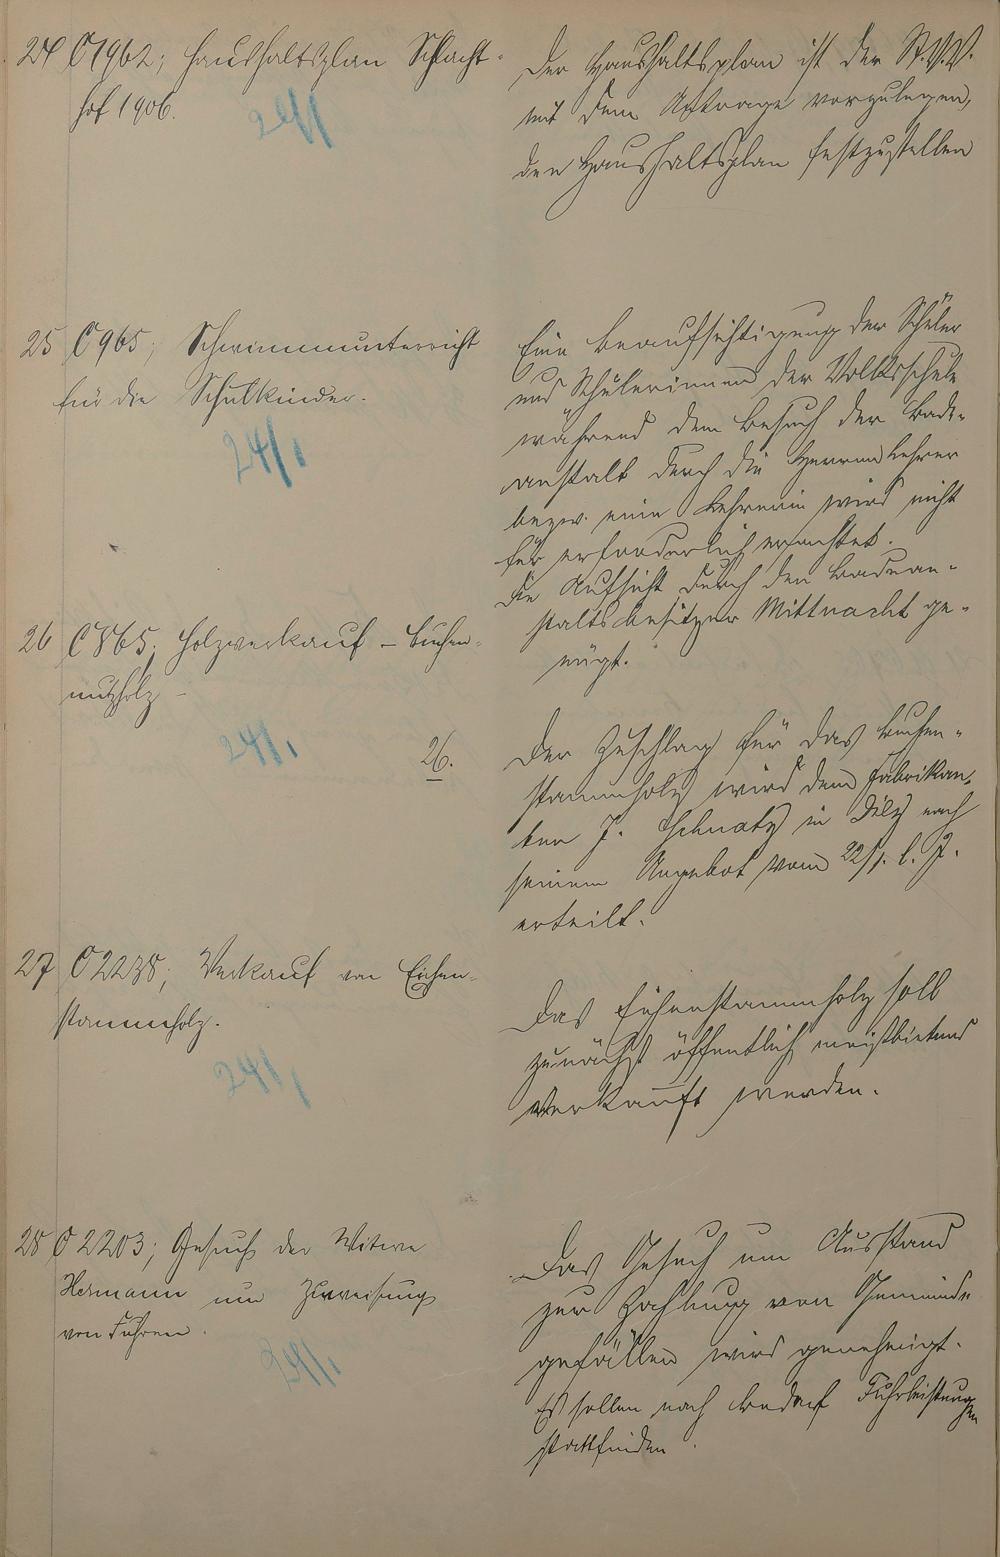 24 C 1962; Haushaltsplan Schlacht-
hof 1906.
24/1
Der Haushaltsplan ist der St.V.V.
mit dem Antrage vorzulegen,
den Haushaltsplan festzustellen
25 C 965; Schwimmunterricht
für die Schulkinder.
24/1
Eine Beaufsichtigung der Schüler
und Schülerinnen der Volksschule
während dem Besuch der Bade-
anstalt durch die Herren Lehrer
bezw. eine Lehrerin wird nicht
für erforderlich erachtet.
Die Aufsicht durch den Badean-
staltsbesitzer Mittnacht ge-
nügt.
26 C 865; Holzverkauf – Buchen-
nutzholz –
24/1
26.
Der Zuschlag für das Buchen-
stammholz wird dem Fabrikan-
ten J. Schnatz in Diez nach
seinem Angebot vom 22/1. l. J.
erteilt.
27 C 2238; Verkauf von Eichen-
stammholz.
24/1
Das Eichenstammholz soll
zunächst öffentlich meistbietend
verkauft werden.
28 C 2203; Gesuch der Witwe
Hermann um Zuweisung
von Fuhren.
24/1
Das Gesuch um Ausstand
zur Zahlung von Gemeinde
gefällen wird genehmigt.
Es sollen nach Bedarf Fuhrleistungen
stattfinden.